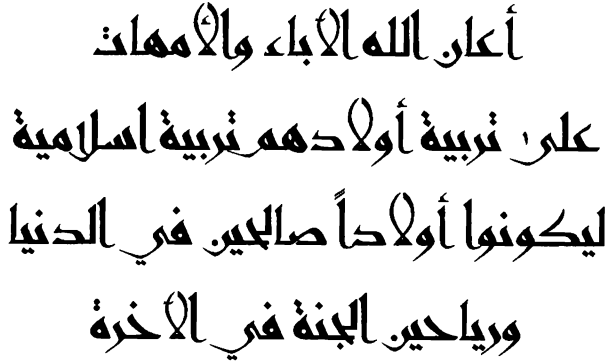 أعان الله الأباء والأمهات
على تربية أولادهم تربية اسلامية
ليكونوا أولاداً صالحين في الدنيا
ورياحين الجنة في الأخرة